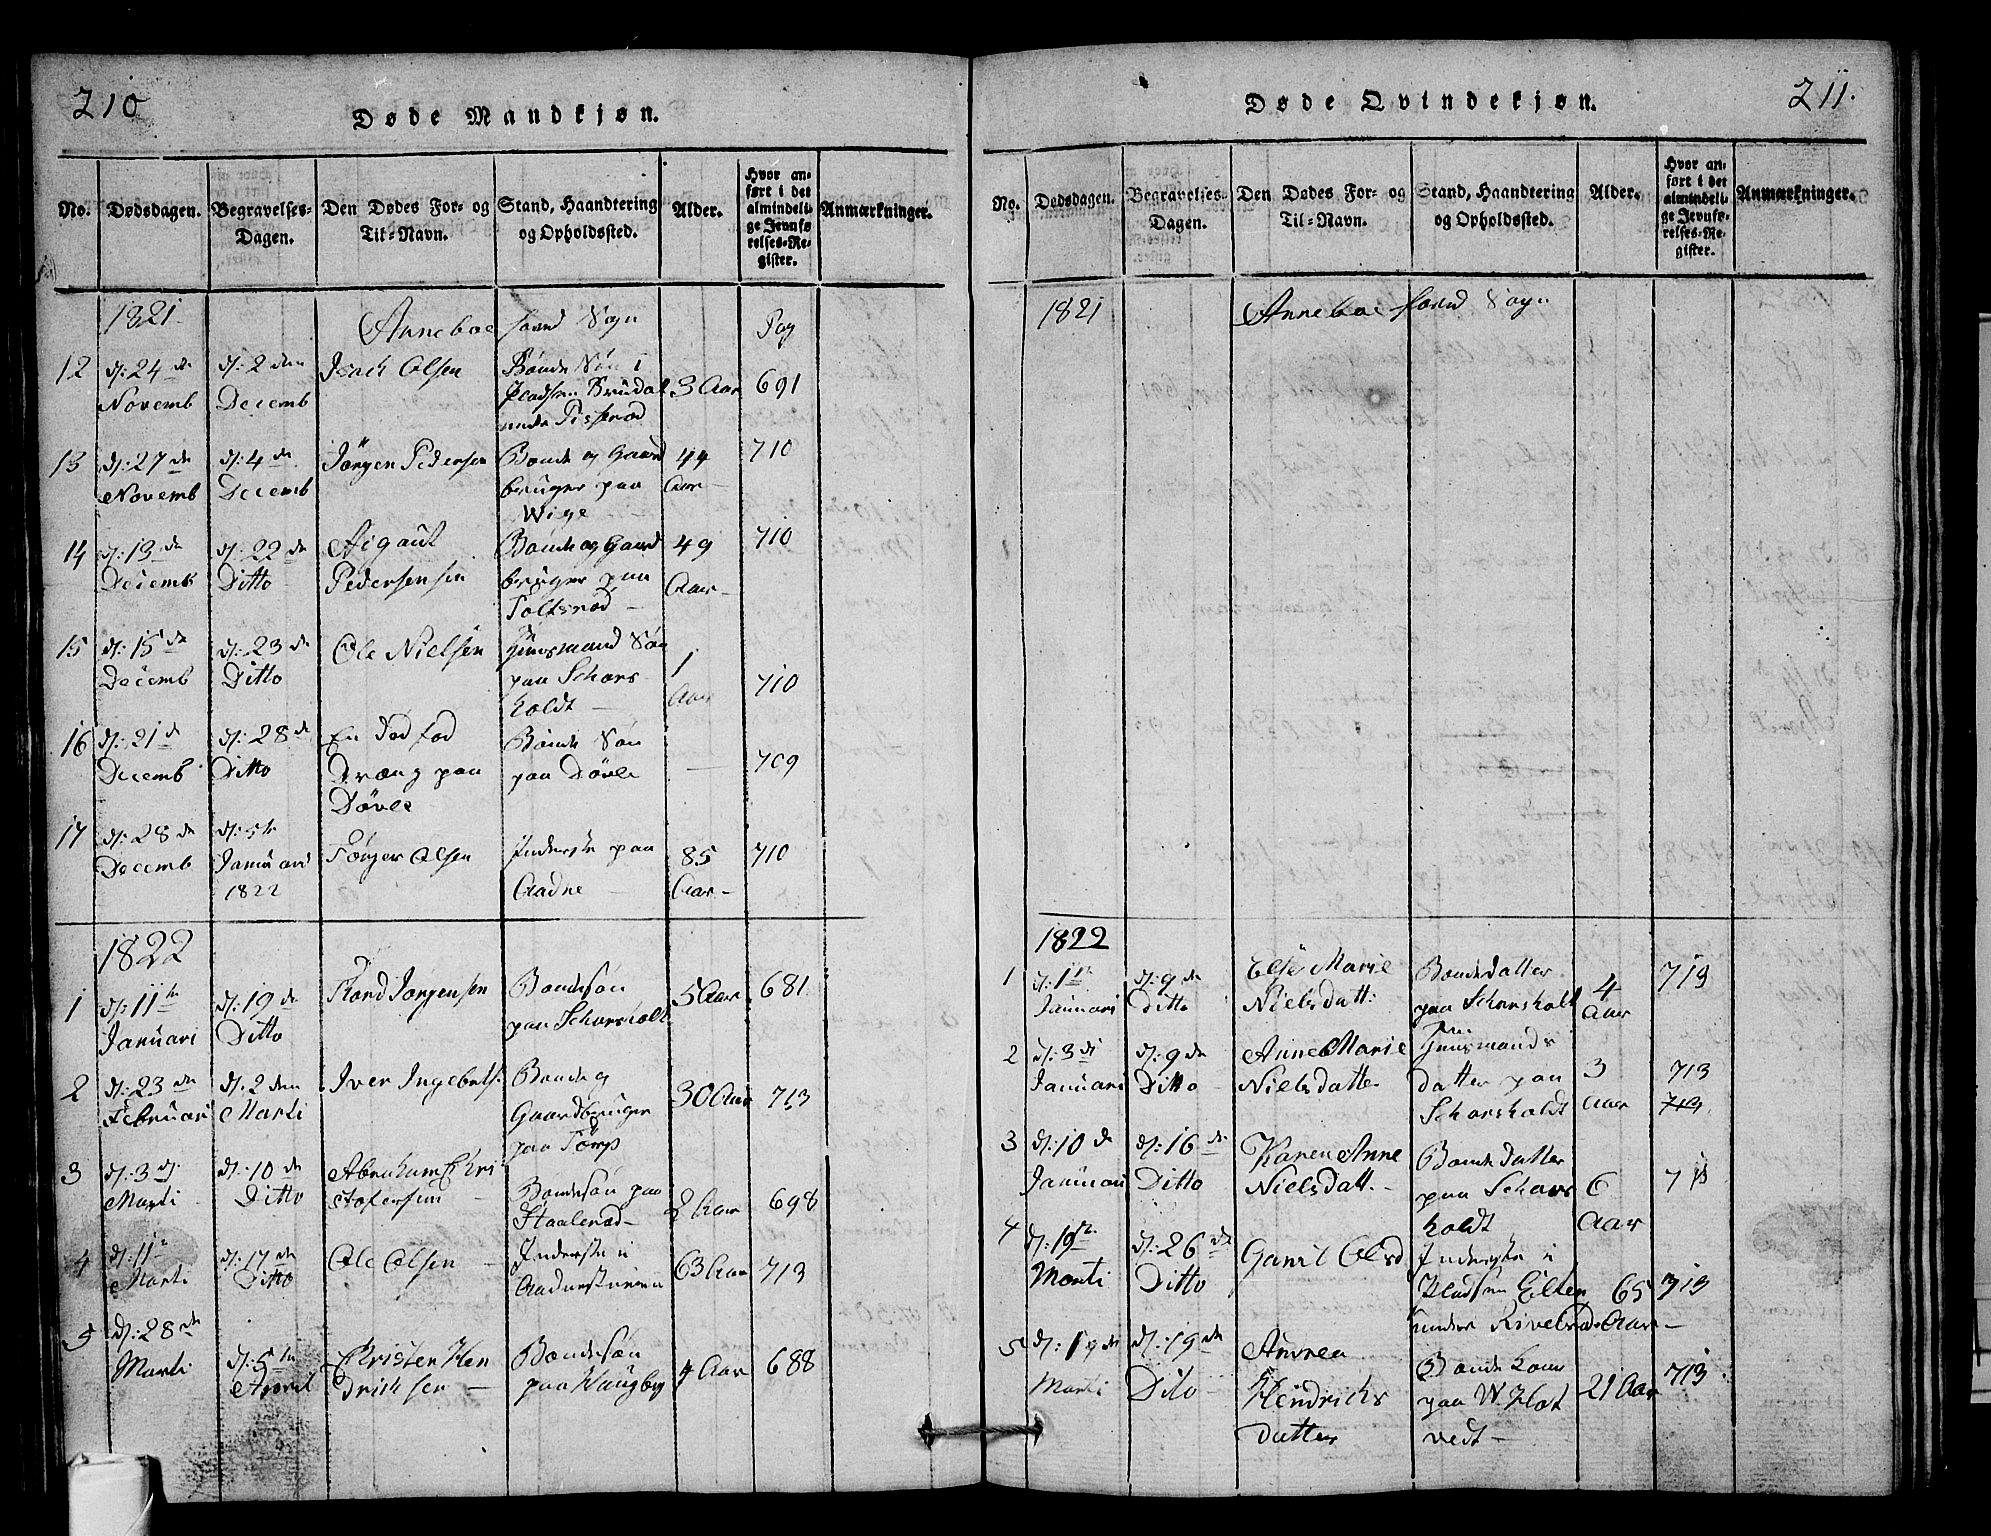 210
Døde Mandkjøn.
No.
Dødsdagen.
Begravelses-
Dagen.
Den Dødes For- og
Til-Navn.
Stand, Haandtering
og Opholdssted.
Alder.
Hvor an-
ført i det
almindeli-
ge Jevnfø-
relses-Re-
gister.
Anmærkninger.
1821
Anneboe
Sogn
Pag
12
d: 24 de
Novemb
d: 2 den
Decemb
Isach Olsen
Bonde Søn i
Pladsen
under
3 Aar
691
13
d: 27 de
Novemb
d: 4 de
Decemb
Jørgen Pedersen
Bonde og Gaard
bruger paa
Wige
44
Aar
710
14
d: 13 de
Decemb
d: 22 de
Ditto
Pedersen
Bonde og Gaard
bruger paa
49
Aar
710
15
d: 15 de
Decemb
d: 23 de
Ditto
Ole Nielsen
Huusmand Søn
paa Schors
holdt
1
Aar
710
16
d: 21 de
Decemb
d: 28 de
Ditto
En død fød
Dræng paa
Døvle
Bonde Søn
paa Døvle
709
17
d: 28 de
Decemb
d: 5te
Januari
1822
Tørger Olsen
Inderste paa
Aadne
85
Aar
710
1822
1
d: 11te
Januari
d: 19 de
Ditto
Jørgensen
Bondesøn
paa Schorsholt
5 Aar
681
2
d: 23 de
Februari
d: 2 den
Marti
Iver Ingebrets.
Bonde og
Gaardbruger
paa Tørp
30 Aar
713
3
d: 3 di
Marti
d: 10 de
Ditto
Abraham Chri
stofersen
Bondesøn paa
Staalerød
2 Aar
698
4
d: 11te
Marti
d: 17 de
Ditto
Ole Olsen
Inderste i
63 Aar
713
5
d: 28 de
Marti
d: 5te
Aprril
Christen Hen
drichsen
Bondesøn
paa Haugby
4 Aar
688
211.
Døde Qvindekjøn.
No.
Dødsdagen.
Begravelses-
Dagen.
Den Dødes For- og
Til-Navn.
Stand, Haandtering
og Opholdssted.
Alder.
Hvor an-
ført i det
almindeli-
ge Jevnfø-
relses-Re-
gister.
Anmærkninger.
1821
Anneboe
Sogn
1822
1
d: 1te
Januari
d: 9 de
Ditto
Else Marie
Nielsdatt:
Bondedatter
paa Schorsholt
4
Aar
713
2
d: 3 di
Januari
d: 9 de
Ditto
Anne Marie
Nielsdatter
Huusmands
datter paa
Schorsholdt
3
Aar
713
713
3
d: 10 de
Januari
d: 16 de
Ditto
Karen Anne
Nielsdatt.
Bondedatter
paa Schors
holdt
6
Aar
713
4
d: 19de
Marti
d: 26 de
Ditto
Olsd
Inderste i
Pladsen
under
65
Aar
713
5
d: 19 de
Marti
d: 19 de
Dito
Anrea
Hendrichs
datter
Bonde kone
paa W. Flot
vedt
21 Aar
713